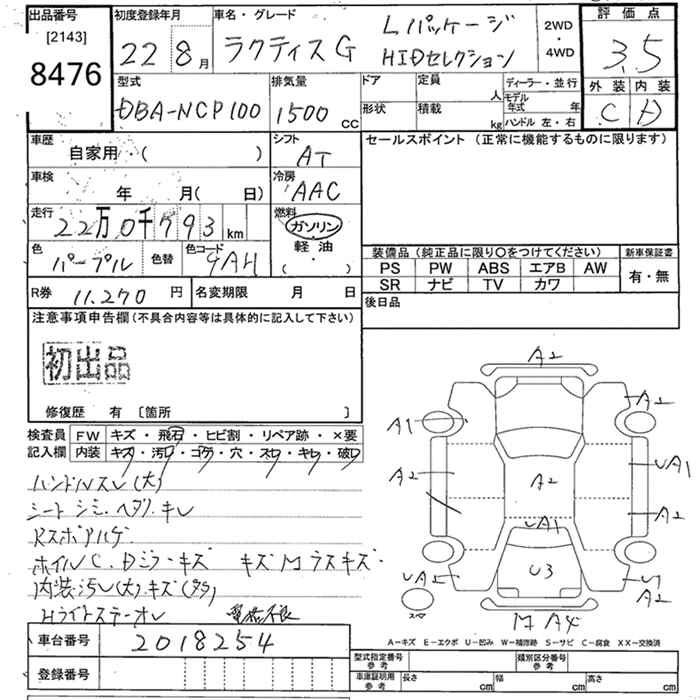 出品番号 [2143] 8476
初度登録年月 22 8月
車名・グレード ラクティスG Lパッケージ HIDセレクション
2WD・4WD
評価点 3.5
外装 C 内装 D
型式 DBA-NCP100
排気量 1500 cc
ドア 形状
定員 人
積載 kg
ディーラー・並行
モデル年式 年
ハンドル 左・右
車歴 自家用 ( )
シフト AT
セールスポイント (正常に機能するものに限ります)
車検 年 月( 日)
冷房 AAC
走行 22万0千793 km
燃料 ガソリン 軽油 ( ・ )
色 パープル 色替
色コード 9AH
装備品 (純正品に限り〇をつけてください)
新車保証書 有・無
PS PW ABS エアB AW
SR ナビ TV カワ
R券 11.270 円 名変期限 月 日
後日品
注意事項申告欄 (不具合内容等は具体的に記入して下さい)
初出品
修復歴 有 〔箇所 〕
検査員記入欄
FW キズ・飛石・ヒビ割・リペア跡・×要
内装 キズ・汚レ・コゲ・穴・スレ・キレ・破レ
ハンドルスレ(大)
シート シミ.ヘタリ.キレ
Rスポアハゲ
ホイルC. Dミラーキズ キズMラスキズ.
内装汚レ(大).キズ(多)
Hライトステーオレ
車台番号 2018254
登録番号
A2
A2
A1
A2
A2
UA1
A2
UA1
U3
A2
スペ
M A4
A-キズ E-エクボ U-凹み W-補修跡 S-サビ C-腐食 XX-交換済
型式指定番号 参考
類別区分番号 参考
車庫証明用 参考 長さ cm 幅 cm 高さ cm